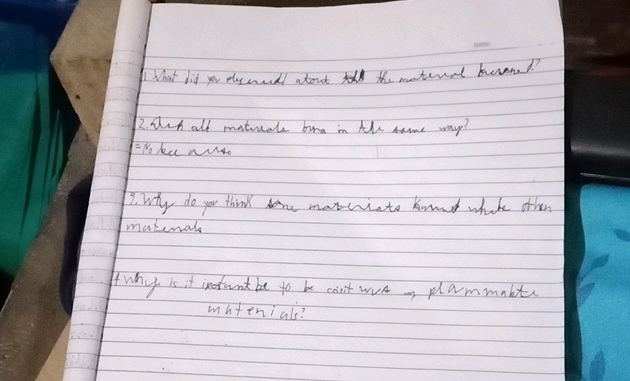 1. What did you observed about the material burned?
2. Did all materials burn in the same way?
= No because
3. Why do you think some materials burned while other
materials
4 Why is it to be in flammable
materials?